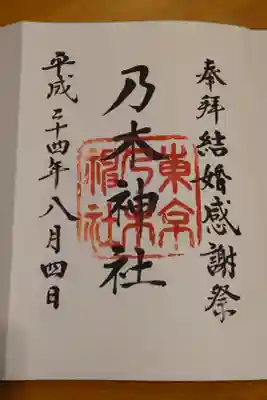 奉拝 結婚感謝祭
乃木神社
東京乃木神社
平成二十四年八月四日